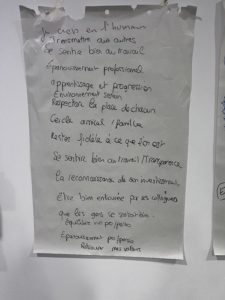 Je crois en l'humain
Transmettre aux autres
Se sentir bien au travail
Épanouissement professionnel
apprentissage et progression
Environnement serein
Respecter la place de chacun
Cercle amical / familial
Rester fidèle à ce que l'on est
Se sentir bien au travail / Transparence
La reconnaissance de son investissement
Être bien entourée par ses collègues
que les gens se
équilibre vie pro/perso
Epanouissement pro/perso
Retrouver mes valeurs